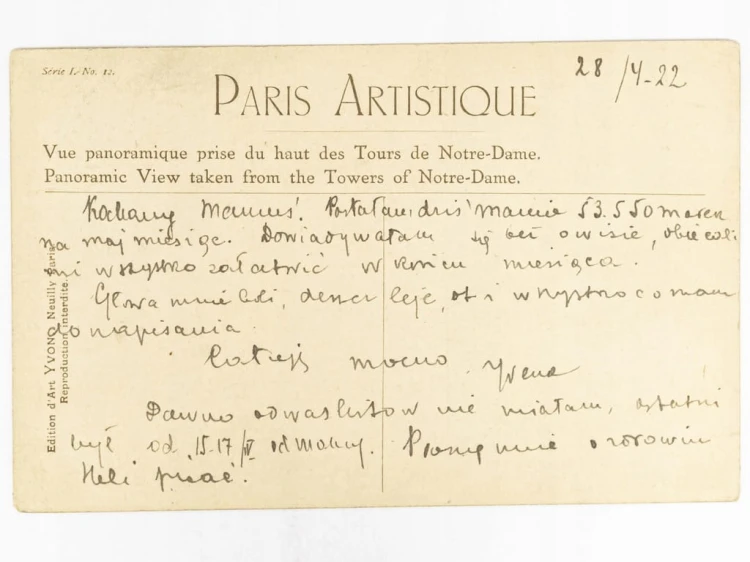 Série I. No. 12.
28/4-22
PARIS ARTISTIQUE
Vue panoramique prise du haut des Tours de Notre-Dame.
Panoramic View taken from the Towers of Notre-Dame.
Kochany Mamuś! Posłałam dziś mamie 53.550 marek
na maj miesiąc. Dowiadywałam się też o wizie, obiecali
mi wszystko załatwić w końcu miesiąca.
Głowa mnie boli, deszcz leje, ot i wszystko co mam
do napisania.
Całuję mocno Yrena
Dawno od was listów nie miałam, ostatni
był od 15-17/IV od mamy. Proszę mnie o zdrowiu
Heli pisać.
Edition d'Art YVON, Neuilly Paris
Reproduction interdite.